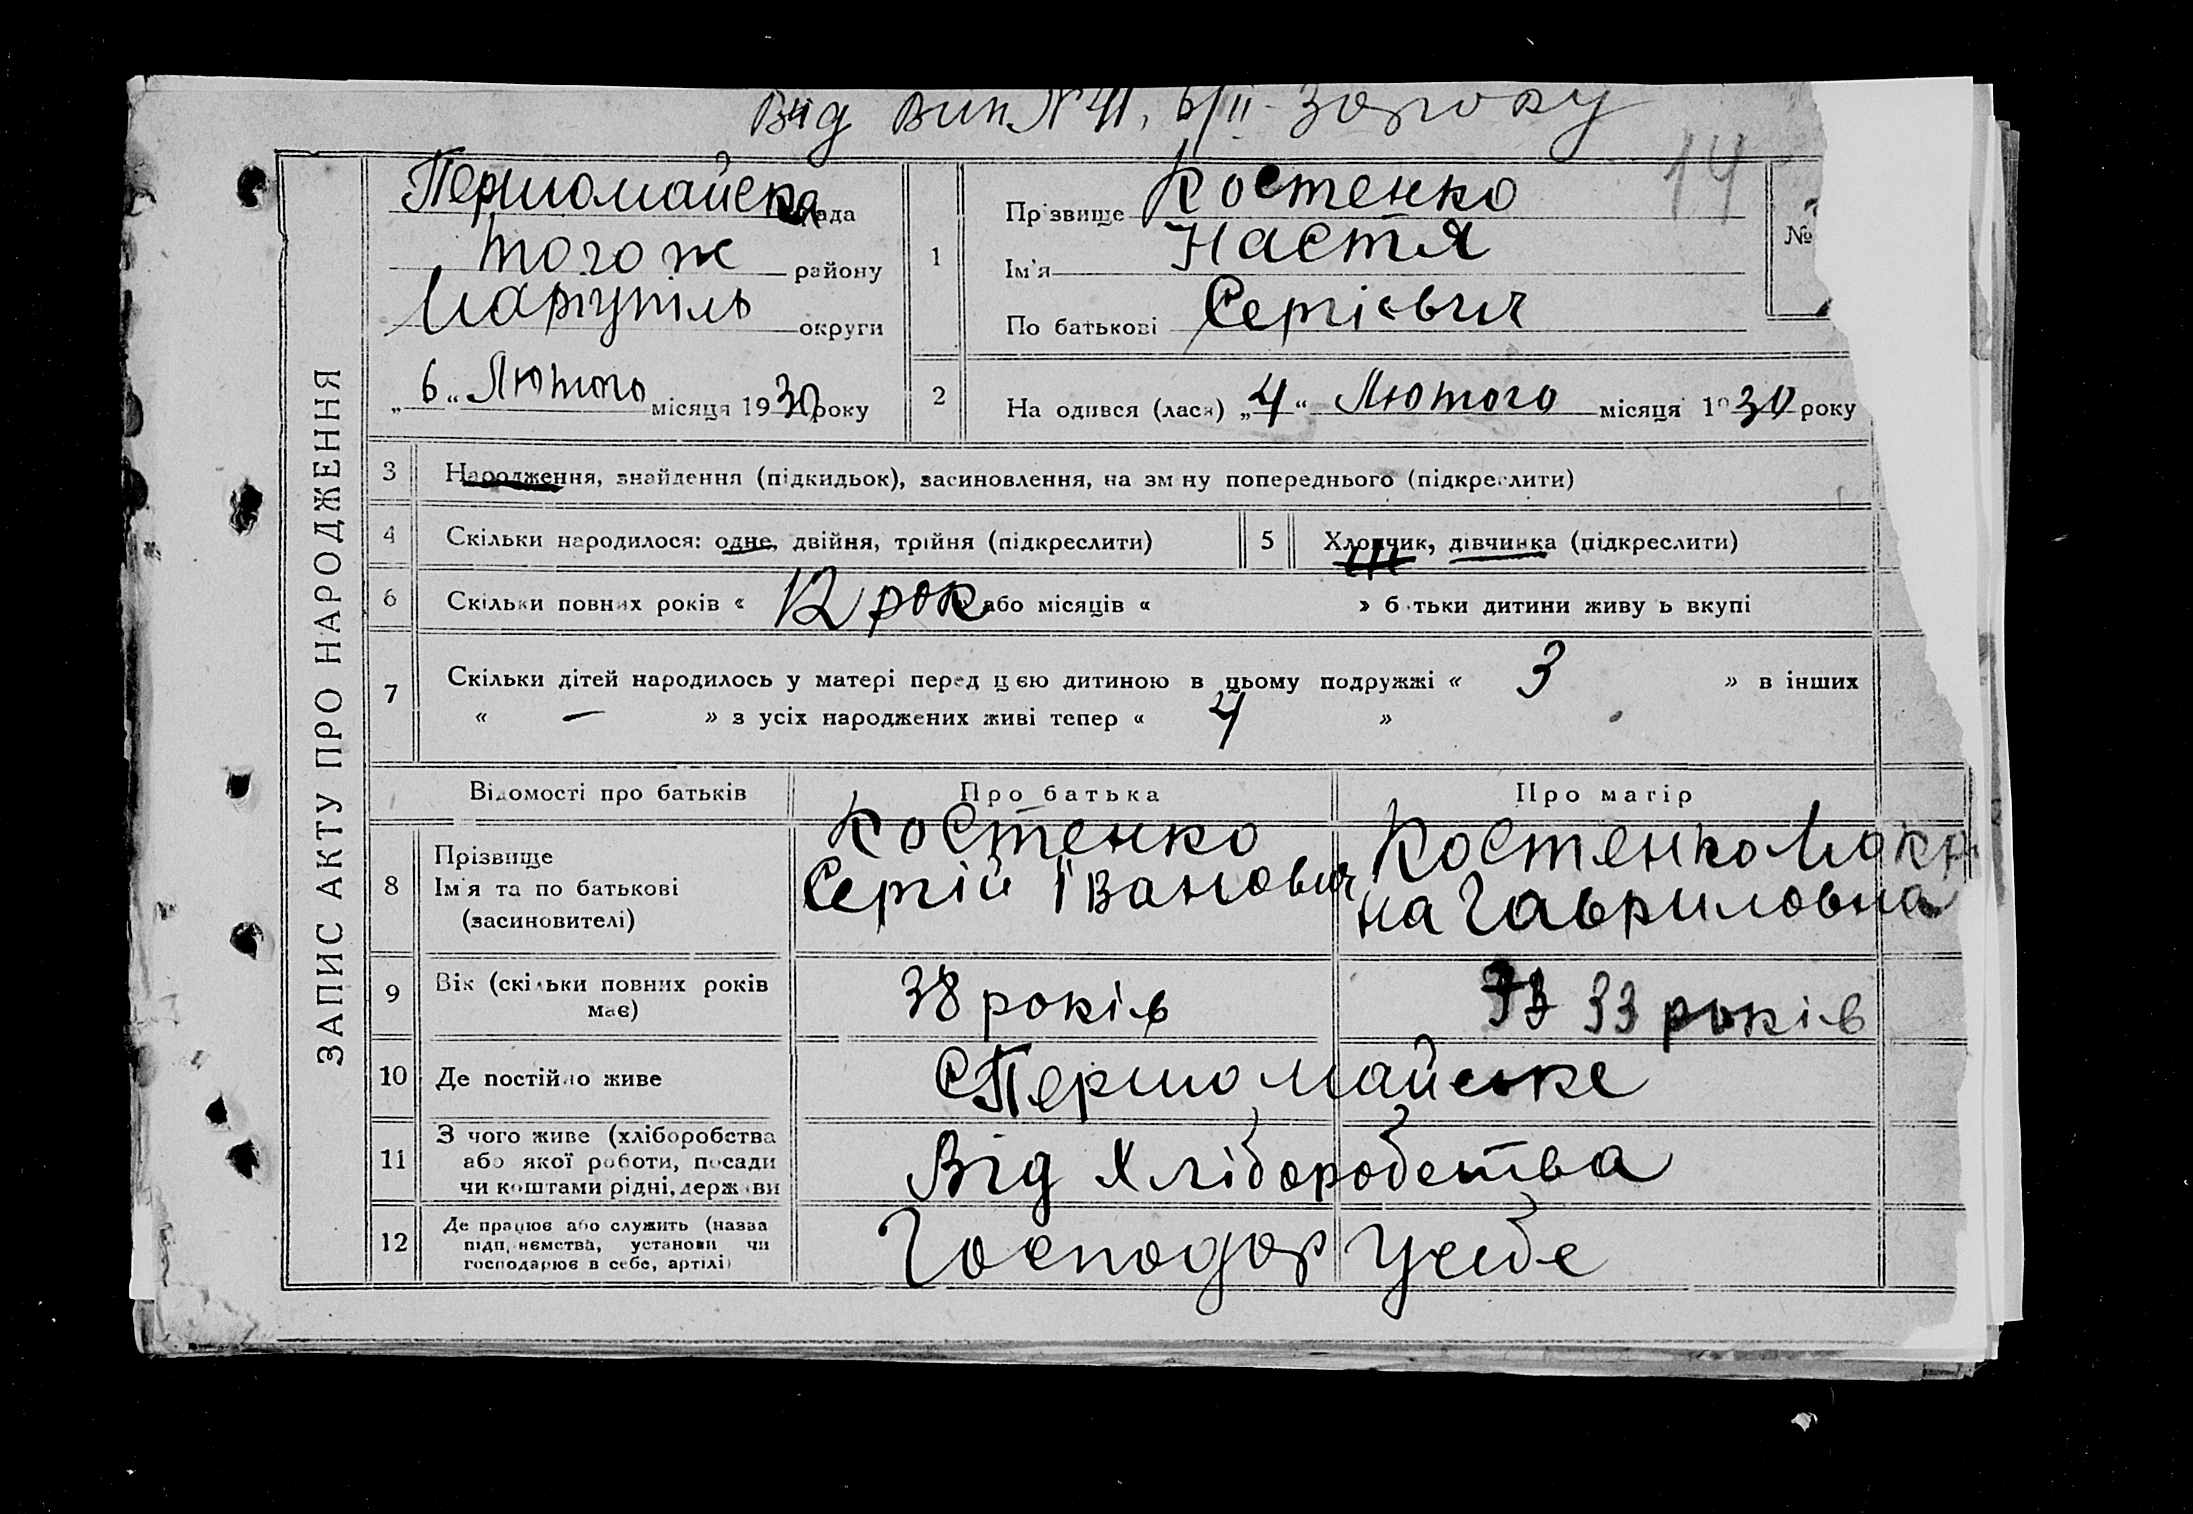 Від вип № 41, 6/II - 30 року
14
ЗАПИС АКТУ ПРО НАРОДЖЕННЯ
Першомайська рада
того ж району
Маріупіль округи
„6“ Лютого місяця 1930 року
1
Прізвище Костенко
Ім'я Настя
По батькові Сергієвич
№
2
На одився (лася) „4“ Лютого місяця 1930 року
3 Народження, знайдення (підкидьок), засиновлення, на зміну попереднього (підкреслити)
4 Скільки народилося: одне, двійня, трійня (підкреслити) 5 Хлопчик, дівчинка (підкреслити)
6 Скільки повних років « 12 рок або місяців « » батьки дитини живуть вкупі
7 Скільки дітей народилось у матері перед цією дитиною в цьому подружжі « 3 » в інших
« — » з усіх народжених живі тепер « 4 »
Відомості про батьків Про батька Про матір
8 Прізвище
Ім'я та по батькові
(засиновителі)
Костенко
Сергій Іванович
Костенко Мокри
на Гавриловна
9 Вік (скільки повних років
має)
38 років
33 років
10 Де постійно живе
С Першомайське
11 З чого живе (хліборобства
або якої роботи, посади
чи коштами рідні, держави
Від Хліборобства
12 Де працює або служить (назва
підприємства, установи чи
господарює в себе, артілі)
Господар у себе